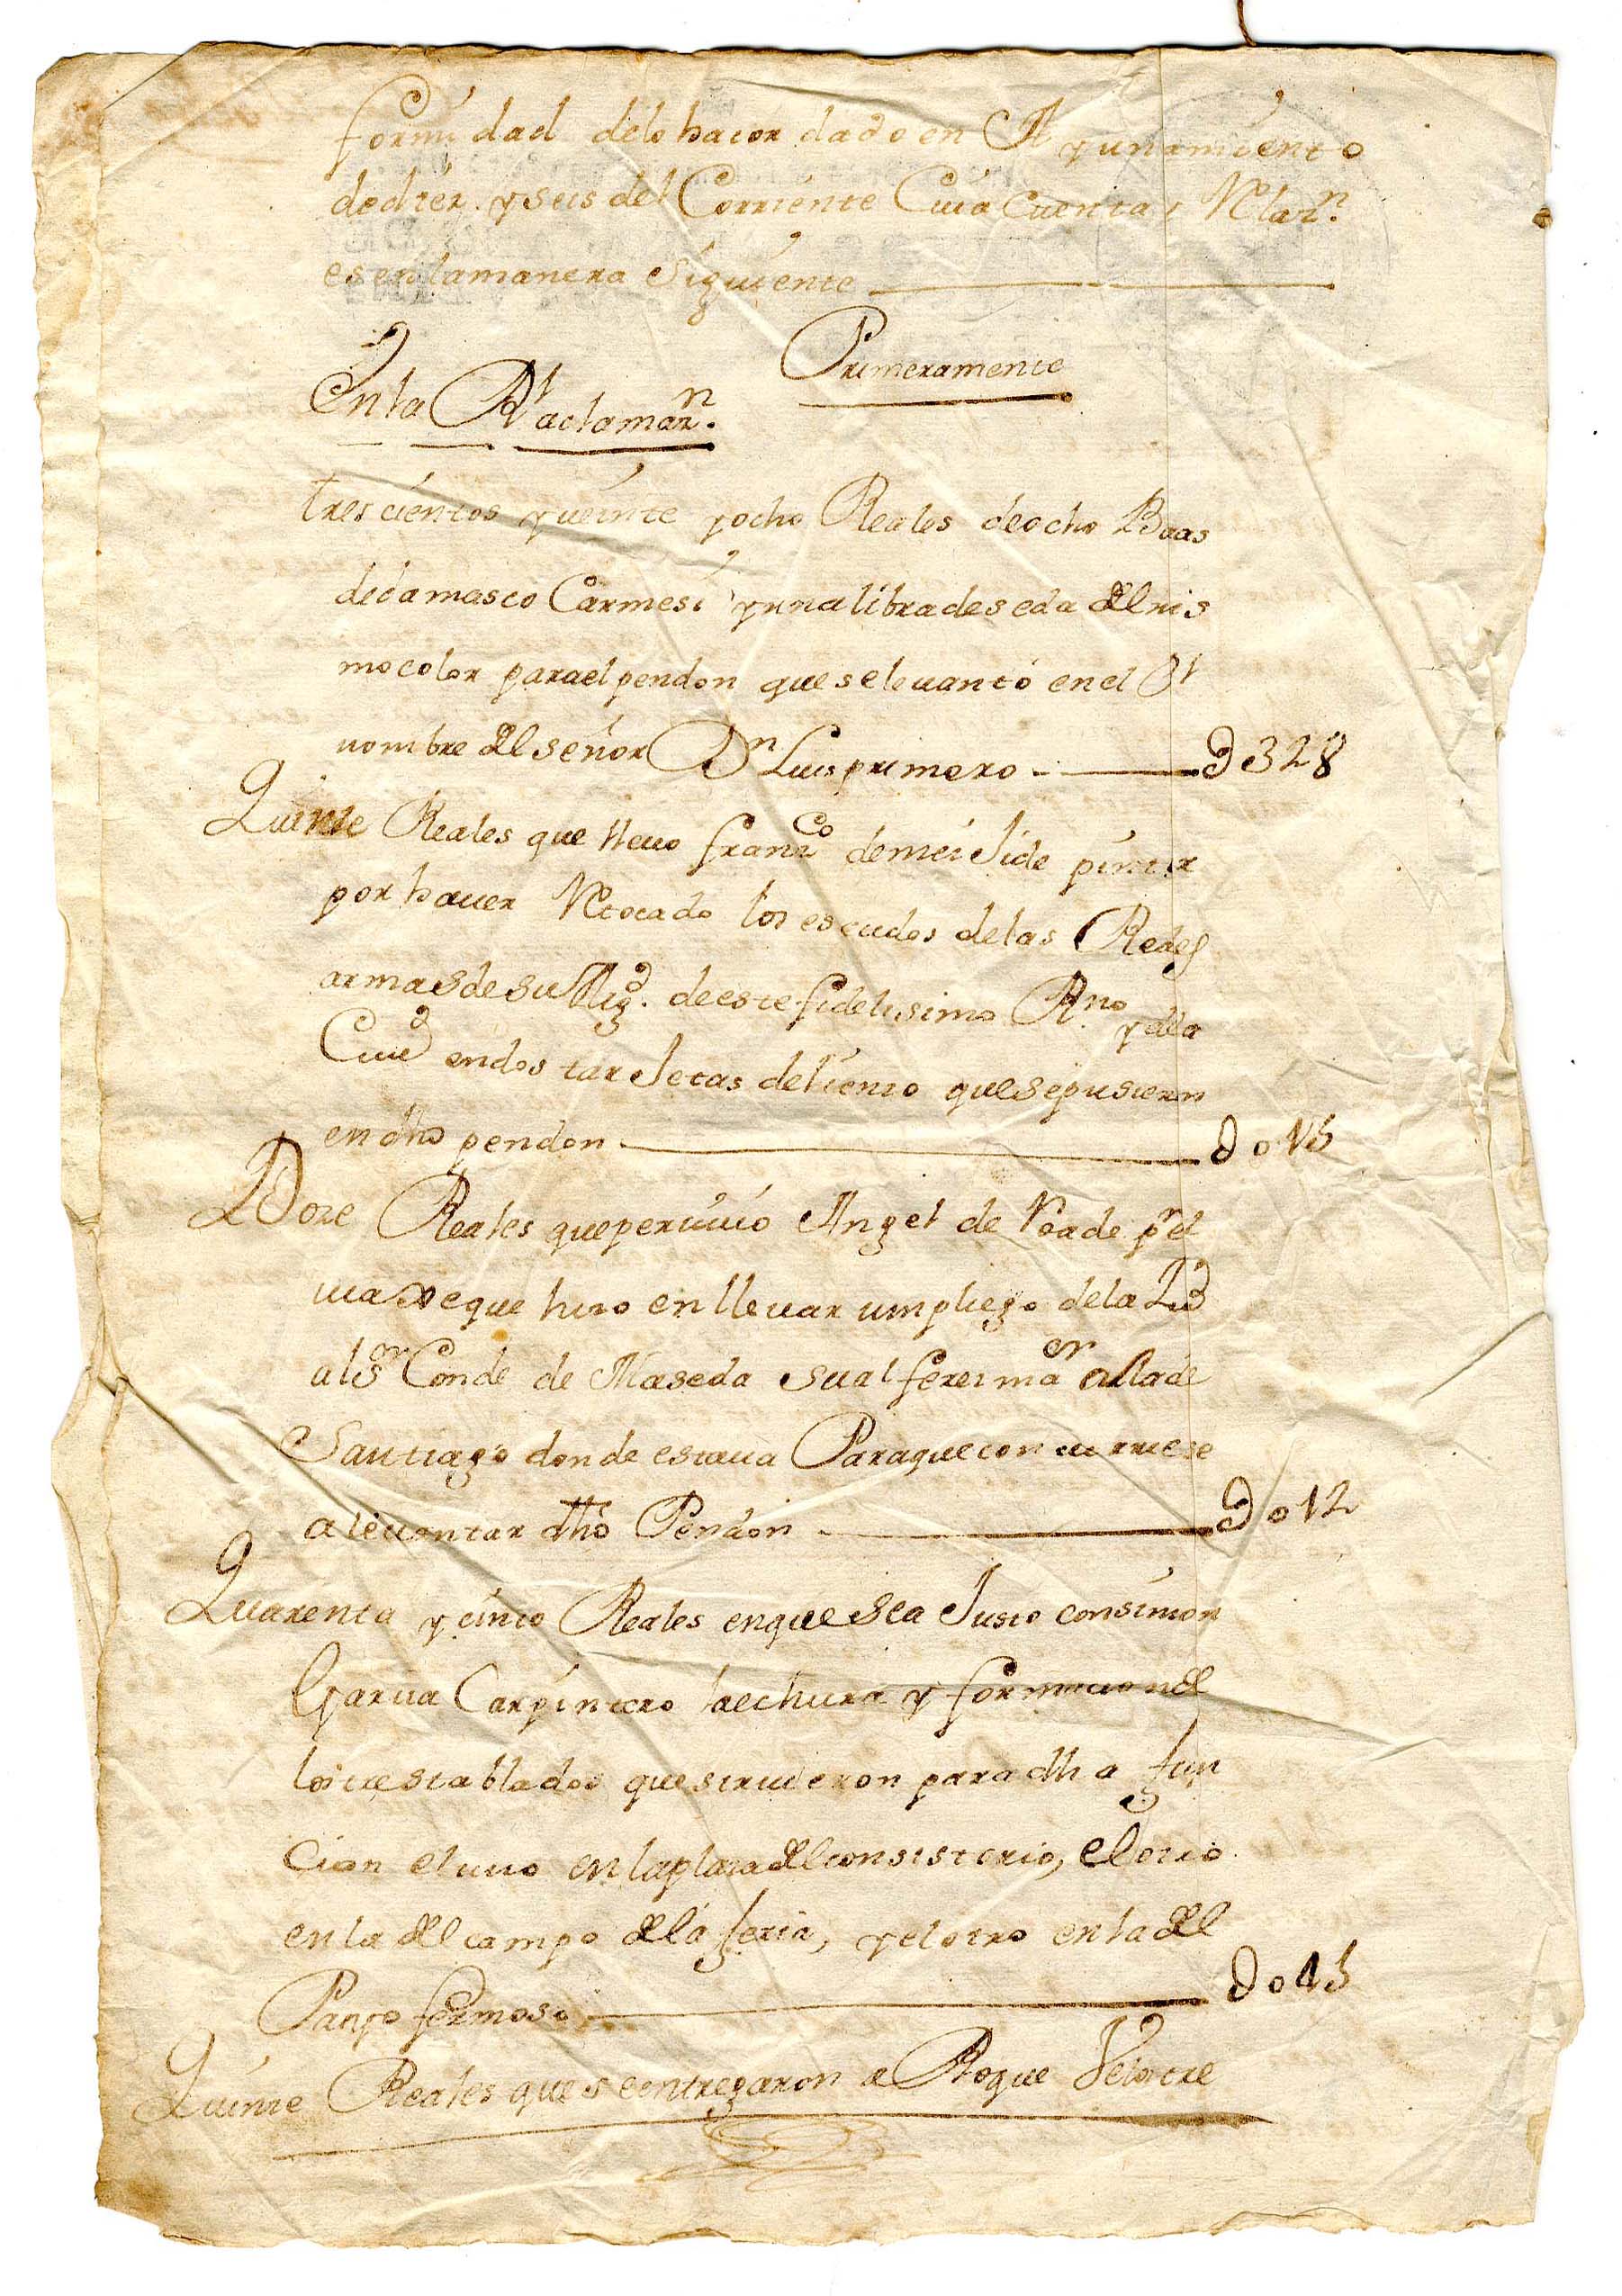 formidad delo hacordado en Ayunamiento
dediez. y seis del Corriente Cuia Cuenta, Rlazn.
es en lamanera Siguiente
Primeramente
En la Rl aclamazn.
tres cientos y veinte y ocho Reales de ocho Baas
de damasco Carmesi y una libra de seda del mis
mo color para el pendon que se levantó en el Rl
nombre del señor Dn Luis primero - D328
Quince Reales que llevo Franco de meiJide pintor
por haver Retocado los escudos de las Reales
armas de su Mgd. de este fidelisimo Rno y de la
Ciud en dos tarJetas de lienzo que se pusieron
en dho pendon D015
Doze Reales que percivió Angel de Voade pr el
viaxe que hizo en llevar un pliego de la Ziud
al Sor Conde de Maseda su alferez maor a la de
Santiago donde estava Para que concurriese
a levantar dho Pendon D012
Quarenta y cinco Reales en que se aJusto con simon
Garcia Carpintero la echura y formacion de
los tres tablados que sirvieron para dha fun
cion el uno en la plaza del consistorio, el otro
en la del campo de la feria, y el otro en la del
Canto fermoso D045
Quince Reales que se entregaron a Roque